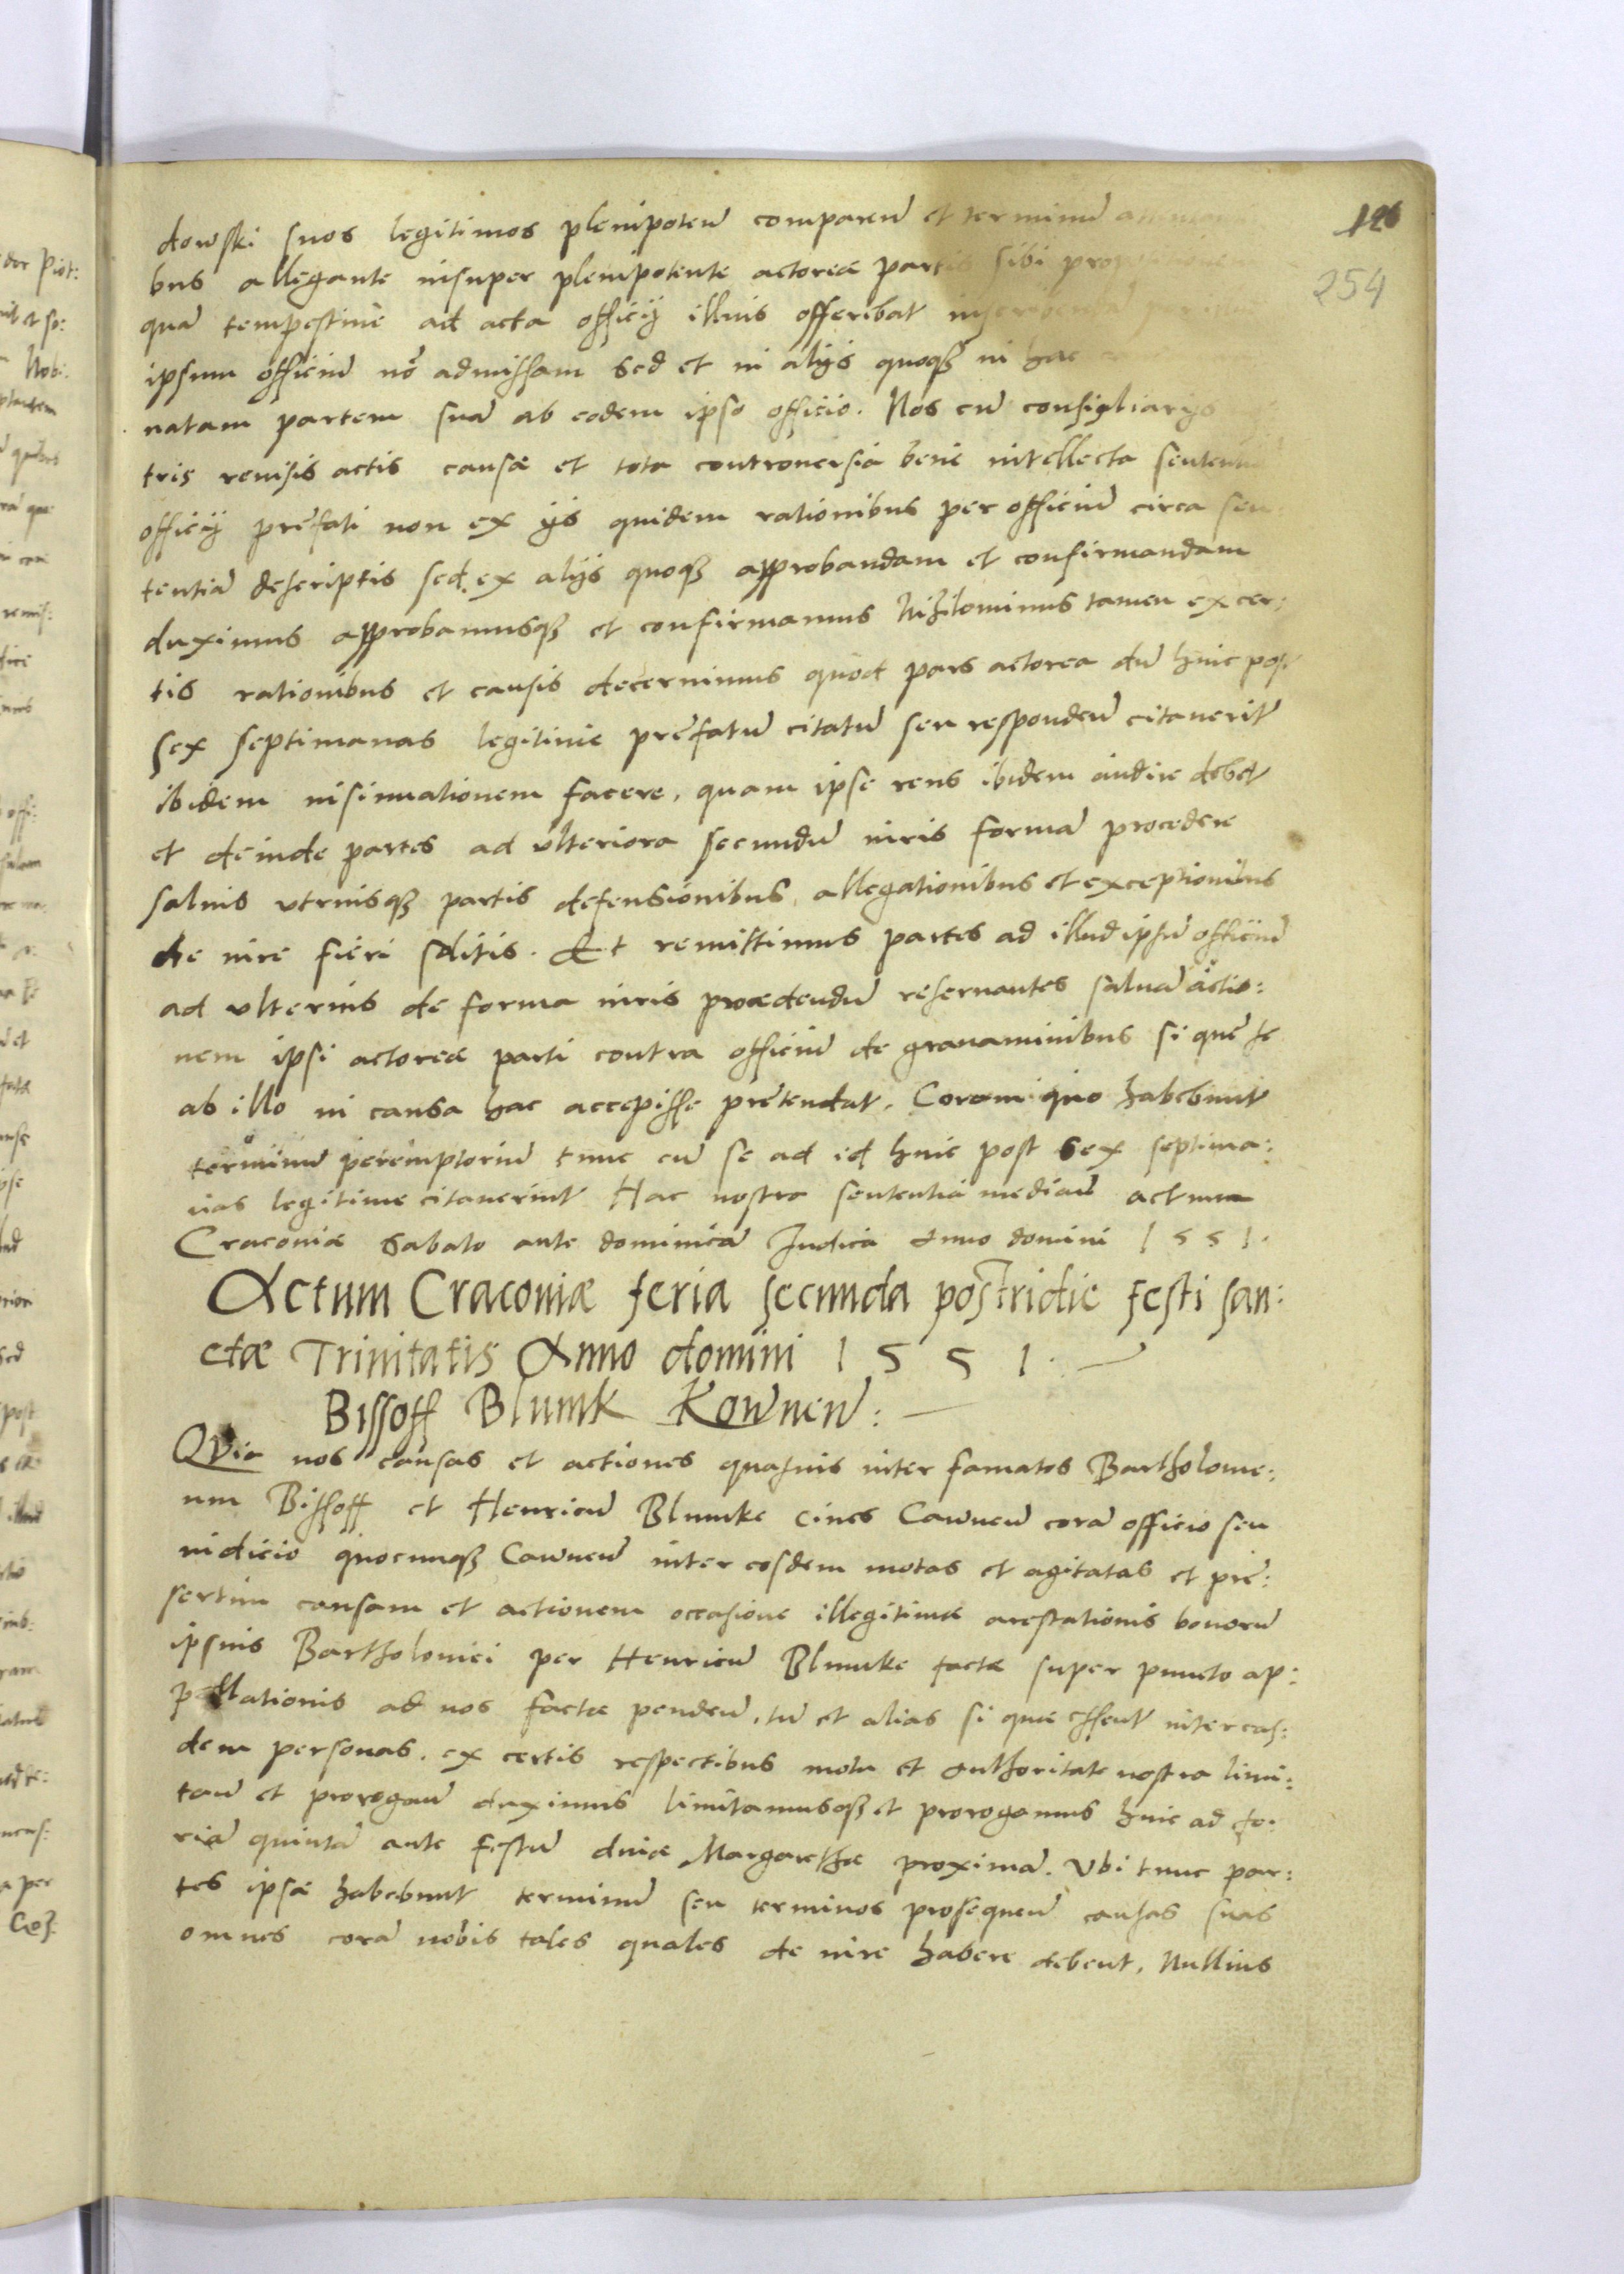 126
254
dowski suos legitimos plenipoteñ compareñ et terminũ
bus allegante insuper plenipotente actoreæ partis sibi
quã tempestiue ad acta officij illius offeribat
ipsum officiũ nõ admissam sed et in alijs quoqȝ in hac
natam partem suã ab eodem ipso officio. Nos cũ consigliarijs
tris reuisis actis causæ et tota controuersia bene intellecta
officij prefati non ex ijs quidem rationibus per officiũ circa sen:
tentiã descriptis sed ex alijs quoqȝ approbandam et confirmandam
duximus approbamusqȝ et confirmamus Nihilominus tamen ex cer:
tis rationibus et causis decernimus quod pars actorea dũ hinc post
sex septimanas legitime prefatũ citatũ seu respondeñ citauerit
ibidem insinuationem facere, quam ipse reus ibidem audire debet
et deinde partes ad vlteriora secundũ iuris formã procedere
saluis vtriusqȝ partis defensionibus allegationibus et exceptionibus
de iure fieri solitis. Et remittimus partes ad illud ipsũ officiũ
ad vlterius de forma iuris procedendũ reseruantes saluã actio:
nem ipsi actoreæ parti contra officiũ de grauaminibus si que se
ab illo in causa hac accepisse pretendat. Coram quo habebunt
terminũ peremptoriũ tunc cũ se ad id hinc post sex septima:
nas legitime citauerint Hac nostra sententia mediañ actum
Cracouiæ Sabato ante dominicã Iudica Anno domini 1551.
Actum Cracouiæ feria secunda postridie festi san:
ctæ Trinitatis Anno domini 1551.
Bissoff Blumk Kowneñ:
Qvia nos causas et actiones quasuis inter famatos Bartholome:
um Bissoff et Henricũ Blumke ciues Cawneñ corã officio seu
iudicio quocunqȝ Cawneñ inter eosdem motas et agitatas et pre:
sertim causam et actionem occasione illegitimæ arestationis bonorũ
ipsius Bartholomei per Henricũ Blumke factæ super puncto ap:
pellationis ad nos factæ pendeñ, tũ et alias si quæ essent inter eas:
dem personas, ex certis respectibus motu et authoritate nostra limi:
tañ et prorogañ duximus limitamusqȝ et prorogamus hinc ad fe:
riã quintã ante festũ diuæ Margarethæ proximã. Vbi tunc par:
tes ipsæ habebunt terminũ seu terminos prosequeñ causas suas
omnes corã nobis tales quales de iure habere debent, Nullius